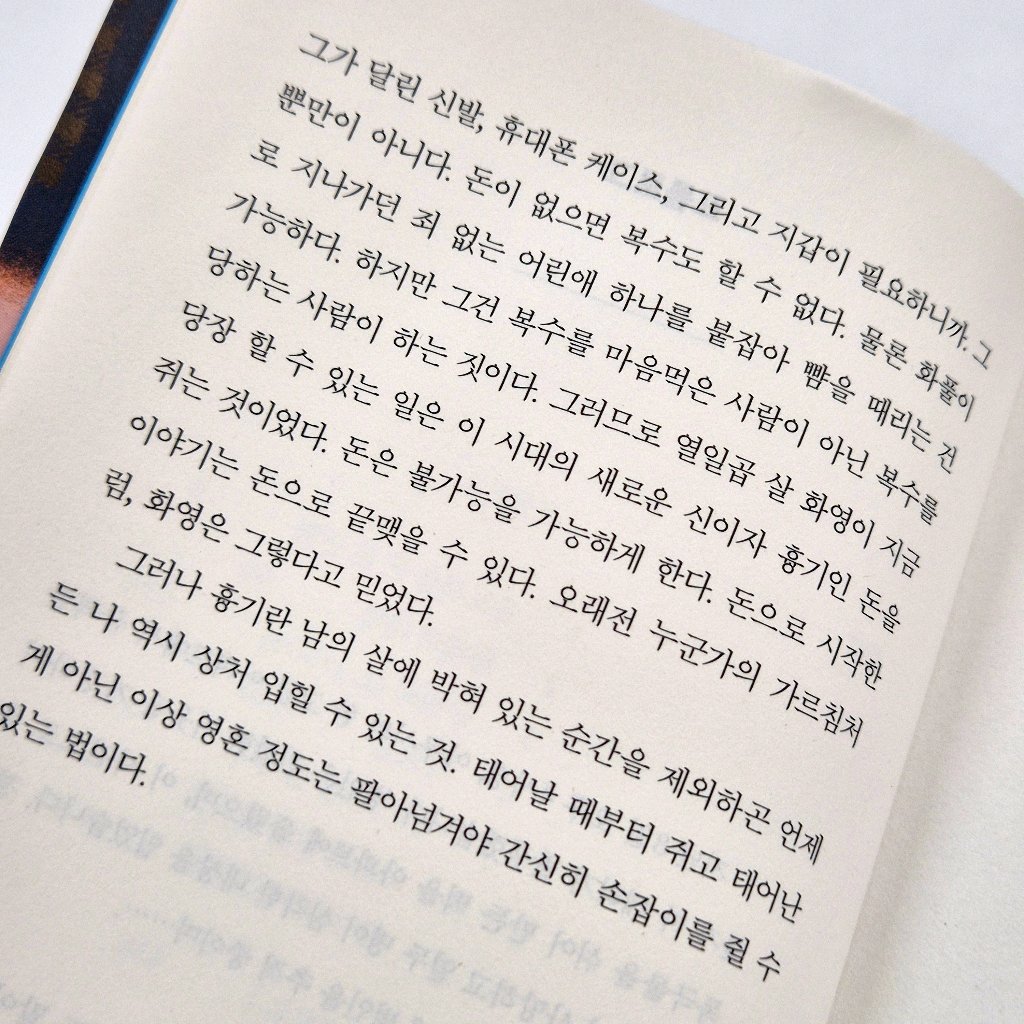 그가 달린 신발, 휴대폰 케이스, 그리고 지갑이 필요하니까. 그
뿐만이 아니다. 돈이 없으면 복수도 할 수 없다. 물론 화풀이
로 지나가던 죄 없는 어린애 하나를 붙잡아 뺨을 때리는 건
가능하다. 하지만 그건 복수를 마음먹은 사람이 아닌 복수를
당하는 사람이 하는 짓이다. 그러므로 열일곱 살 화영이 지금
당장 할 수 있는 일은 이 시대의 새로운 신이자 흉기인 돈을
쥐는 것이었다. 돈은 불가능을 가능하게 한다. 돈으로 시작한
이야기는 돈으로 끝맺을 수 있다. 오래전 누군가의 가르침처
럼, 화영은 그렇다고 믿었다.
그러나 흉기란 남의 살에 박혀 있는 순간을 제외하곤 언제
든 나 역시 상처 입힐 수 있는 것. 태어날 때부터 쥐고 태어난
게 아닌 이상 영혼 정도는 팔아넘겨야 간신히 손잡이를 쥘 수
있는 법이다.